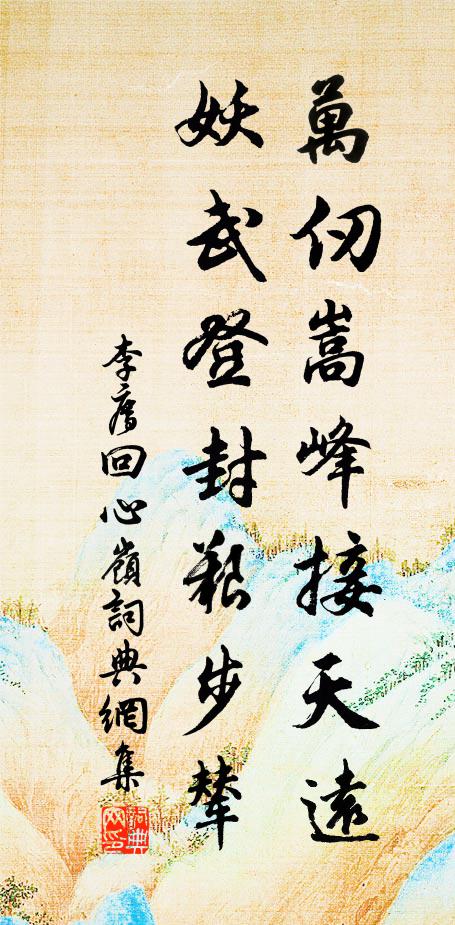 萬仞嵩峰接天遠
妖武登封艱步輦
李廌回心嶺詞典網集
詞典网印